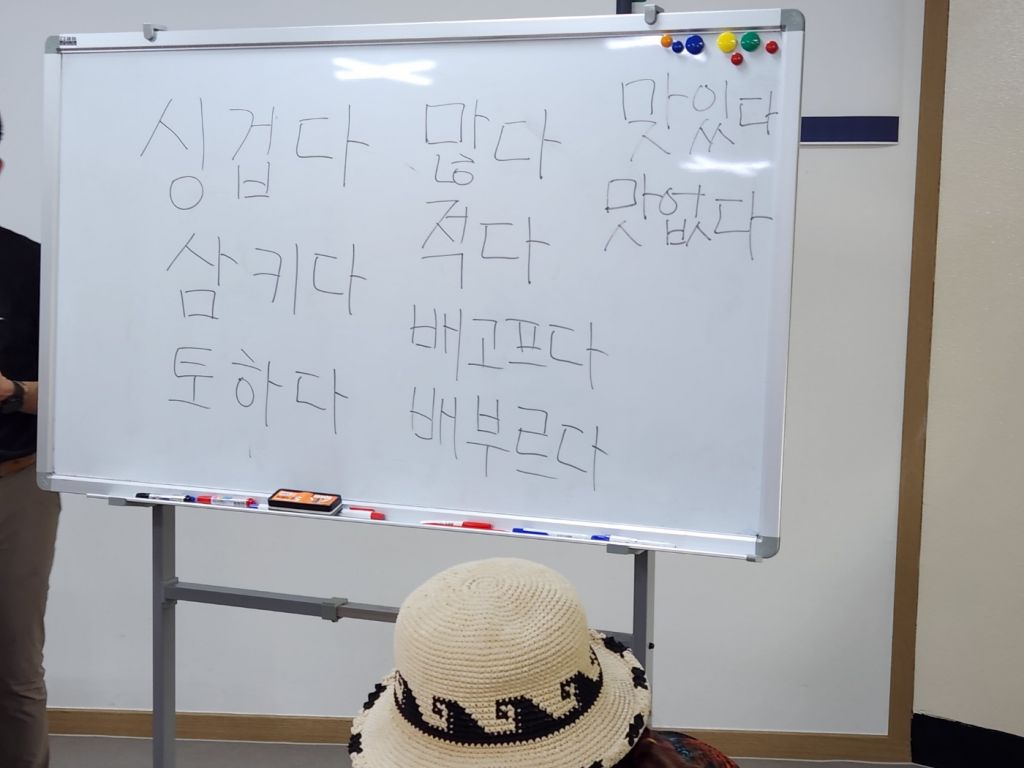 싱겁다
삼키다
토하다
많다
적다
배고프다
배부르다
맛있다
맛없다